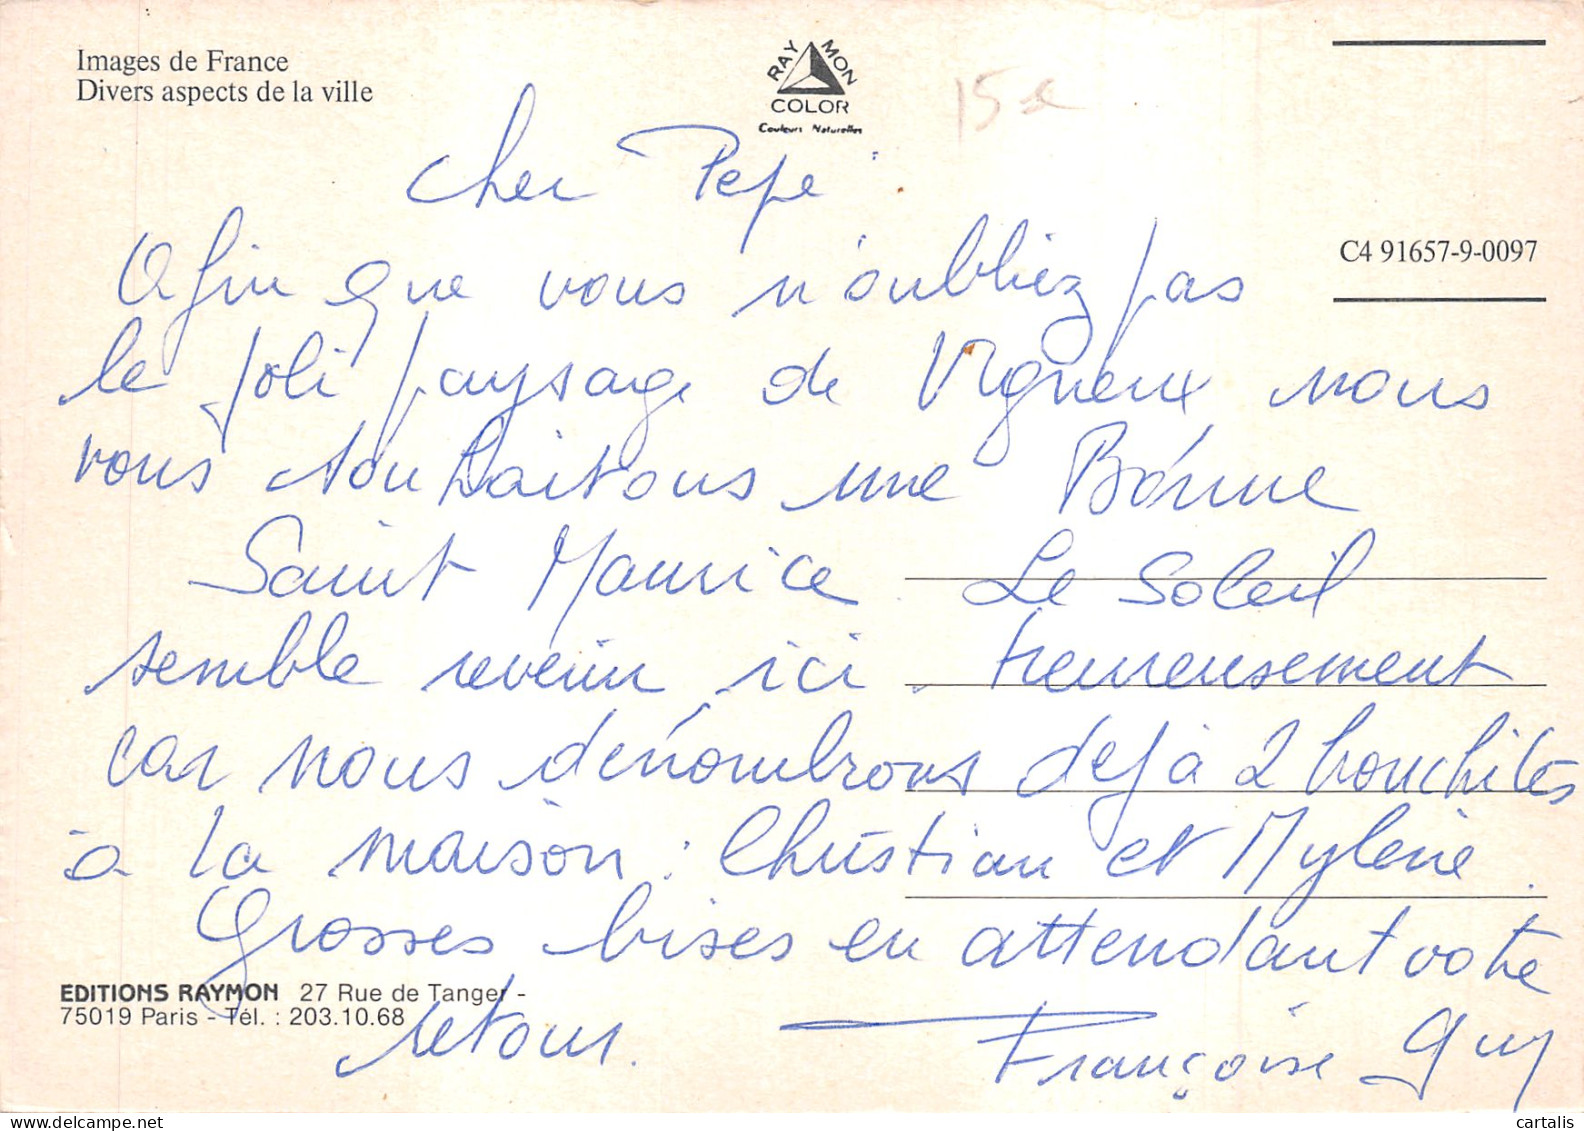 Images de France
Divers aspects de la ville
RAYMON
COLOR
Couleurs Naturelles
15
C4 91657-9-0097
Cher Pépé
Afin que vous n'oubliez pas
le joli paysage de Vigneux nous
vous souhaitons une Bonne
Saint Maurice. Le Soleil
semble revenir ici. Heureusement
car nous dénombrons déjà 2 bouchités
à la maison : Christian et Mylène.
Grosses bises en attendant votre
retour.
Françoise Guy
EDITIONS RAYMON 27 Rue de Tanger -
75019 Paris - Tél. : 203.10.68
cartalis